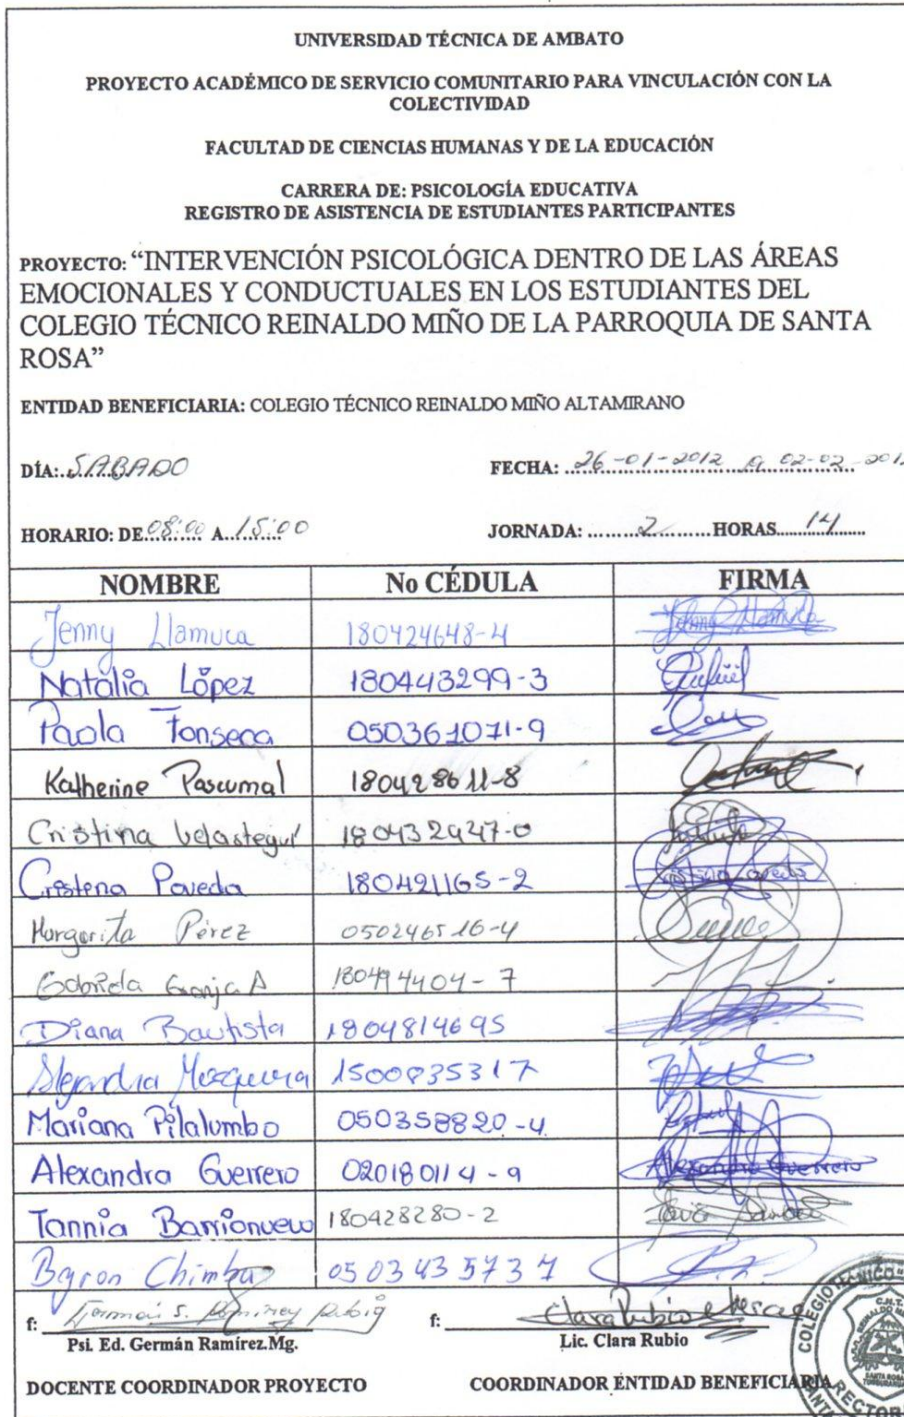 UNIVERSIDAD TÉCNICA DE AMBATO
PROYECTO ACADÉMICO DE SERVICIO COMUNITARIO PARA VINCULACIÓN CON LA
COLECTIVIDAD
FACULTAD DE CIENCIAS HUMANAS Y DE LA EDUCACIÓN
CARRERA DE: PSICOLOGÍA EDUCATIVA
REGISTRO DE ASISTENCIA DE ESTUDIANTES PARTICIPANTES
PROYECTO: “INTERVENCIÓN PSICOLÓGICA DENTRO DE LAS ÁREAS
EMOCIONALES Y CONDUCTUALES EN LOS ESTUDIANTES DEL
COLEGIO TÉCNICO REINALDO MIÑO DE LA PARROQUIA DE SANTA
ROSA”
ENTIDAD BENEFICIARIA: COLEGIO TÉCNICO REINALDO MIÑO ALTAMIRANO
DÍA: SABADO FECHA: 26-01-2012 a 02-02-201
HORARIO: DE 08:00 A 15:00 JORNADA: 2 HORAS 14
NOMBRE No CÉDULA FIRMA
Jenny Llamuca 180424648-4
Natalia López 180443299-3
Paola Fonseca 050361071-9
Katherine Pascumal 180428611-8
Cristina Velastegui 180432447-0
Cristina Poveda 180421165-2 Cristina Poveda
Margarita Pérez 050246516-4
Gabriela Granja A 180494404-7
Diana Bautista 1804814695
Alejandra Mosquera 1500835317
Mariana Pilalumbo 050358820-4
Alexandra Guerrero 020180114-9 Alexandra Guerrero
Tannia Barrionuevo 180428280-2
Byron Chimba 0503435737
f: Germán S. Ramírez f: Clara Rubio
Psi. Ed. Germán Ramírez.Mg. Lic. Clara Rubio
DOCENTE COORDINADOR PROYECTO COORDINADOR ENTIDAD BENEFICIARIA
COLEGIO TECNICO
SANTA ROSA